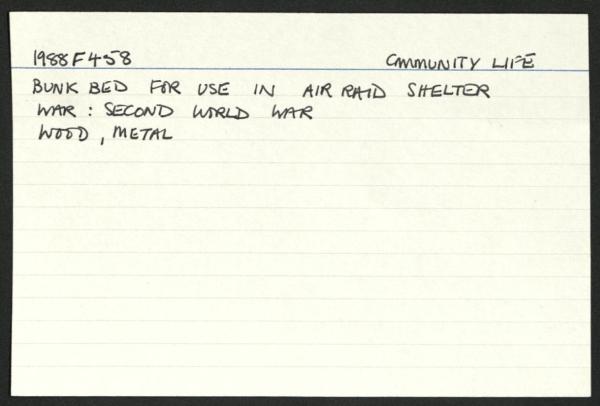 1988F458 COMMUNITY LIFE
BUNK BED FOR USE IN AIR RAID SHELTER
WAR : SECOND WORLD WAR
WOOD, METAL